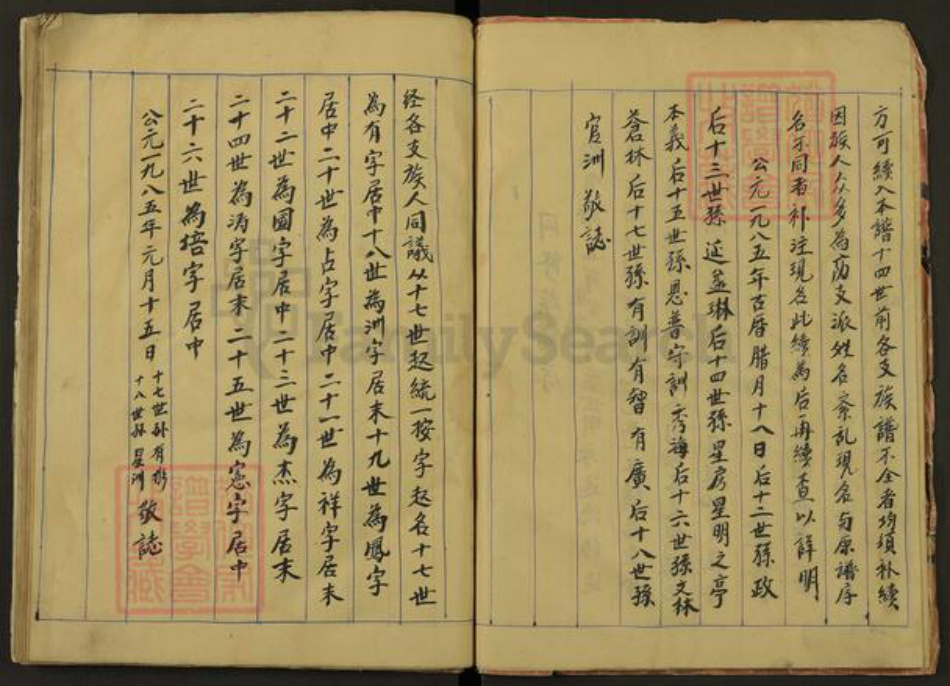 方可續入本譜十四世前各支族譜不全者均須補續
因族人众多為防支派姓名紊乱現名与原譜序
名不同者补注現名此續為后再續查以詳明
公元一九八五年古曆腊月十八日后十二世孫政
后十三世孫延孟琳后十四世孫星房星明之亭
本義后十五世孫恩普守訓秀海后十六世孫文林
蒼林后十七世孫有訓有智有廣后十八世孫
官洲敬誌
经各支族人同議从十七世起統一按字起名十七世
為有字居中十八世為洲字居末十九世為鳳字
居中二十世為占字居中二十一世為祥字居末
二十二世為國字居中二十三世為杰字居末
二十四世為涛字居末二十五世為憲字居中
二十六世為培字居中
公元一九八五年元月十五日 十七世孫有 十八世孫星洲 敬誌
FamilySearch